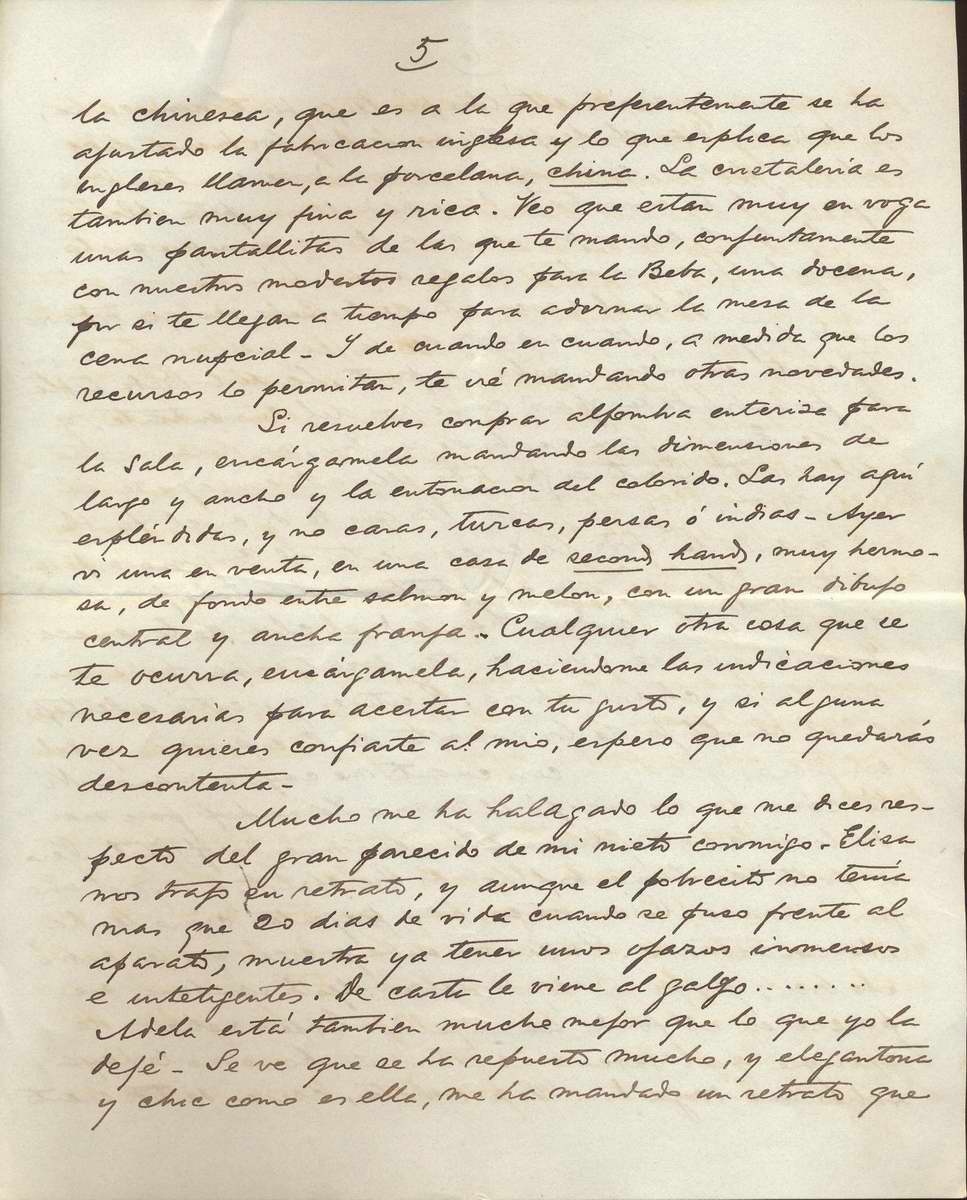 5
la chinesca, que es a la que preferentemente se ha
ajustado la fabricacion inglesa y lo que esplica que los
ingleses llamen, a la porcelana, china. La cristaleria es
tambien muy fina y rica. Veo que estan muy en voga
unas pantallitas de las que te mando, conjuntamente
con nuestros modestos regalos para la Beba, una docena,
por si te llegan a tiempo para adornar la mesa de la
cena nupcial - Y de cuando en cuando, a medida que los
recursos lo permitan, te iré mandando otras novedades.
Si resuelves comprar alfombra enteriza para
la sala, encárgamela mandando las dimensiones de
largo y ancho y la entonacion del colorido. Las hay aquí
espléndidas, y no caras, turcas, persas ó indias - Ayer
vi una en venta, en una casa de second hand, muy hermo-
sa, de fondo entre salmon y melon, con un gran dibujo
central y ancha franja. Cualquier otra cosa que se
te ocurra, encárgamela, haciendome las indicaciones
necesarias para acertar con tu gusto, y si alguna
vez quieres confiarte al mio, espero que no quedarás
descontenta -
Mucho me ha halagado lo que me dices res-
pecto del gran parecido de mi nieto conmigo. Elisa
nos trajo su retrato, y aunque el pobrecito no tenía
mas que 20 dias de vida cuando se puso frente al
aparato, muestra ya tener unos ojazos inmensos
e inteligentes. De casta le viene al galgo........
Adela está tambien mucho mejor que lo que yo la
dejé - Se ve que se ha repuesto mucho, y elegantona
y chic como es ella, me ha mandado un retrato que